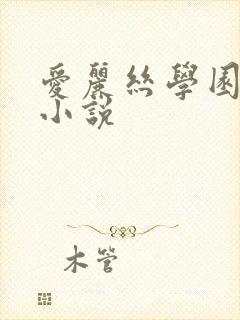 愛麗絲學園
小說
木管